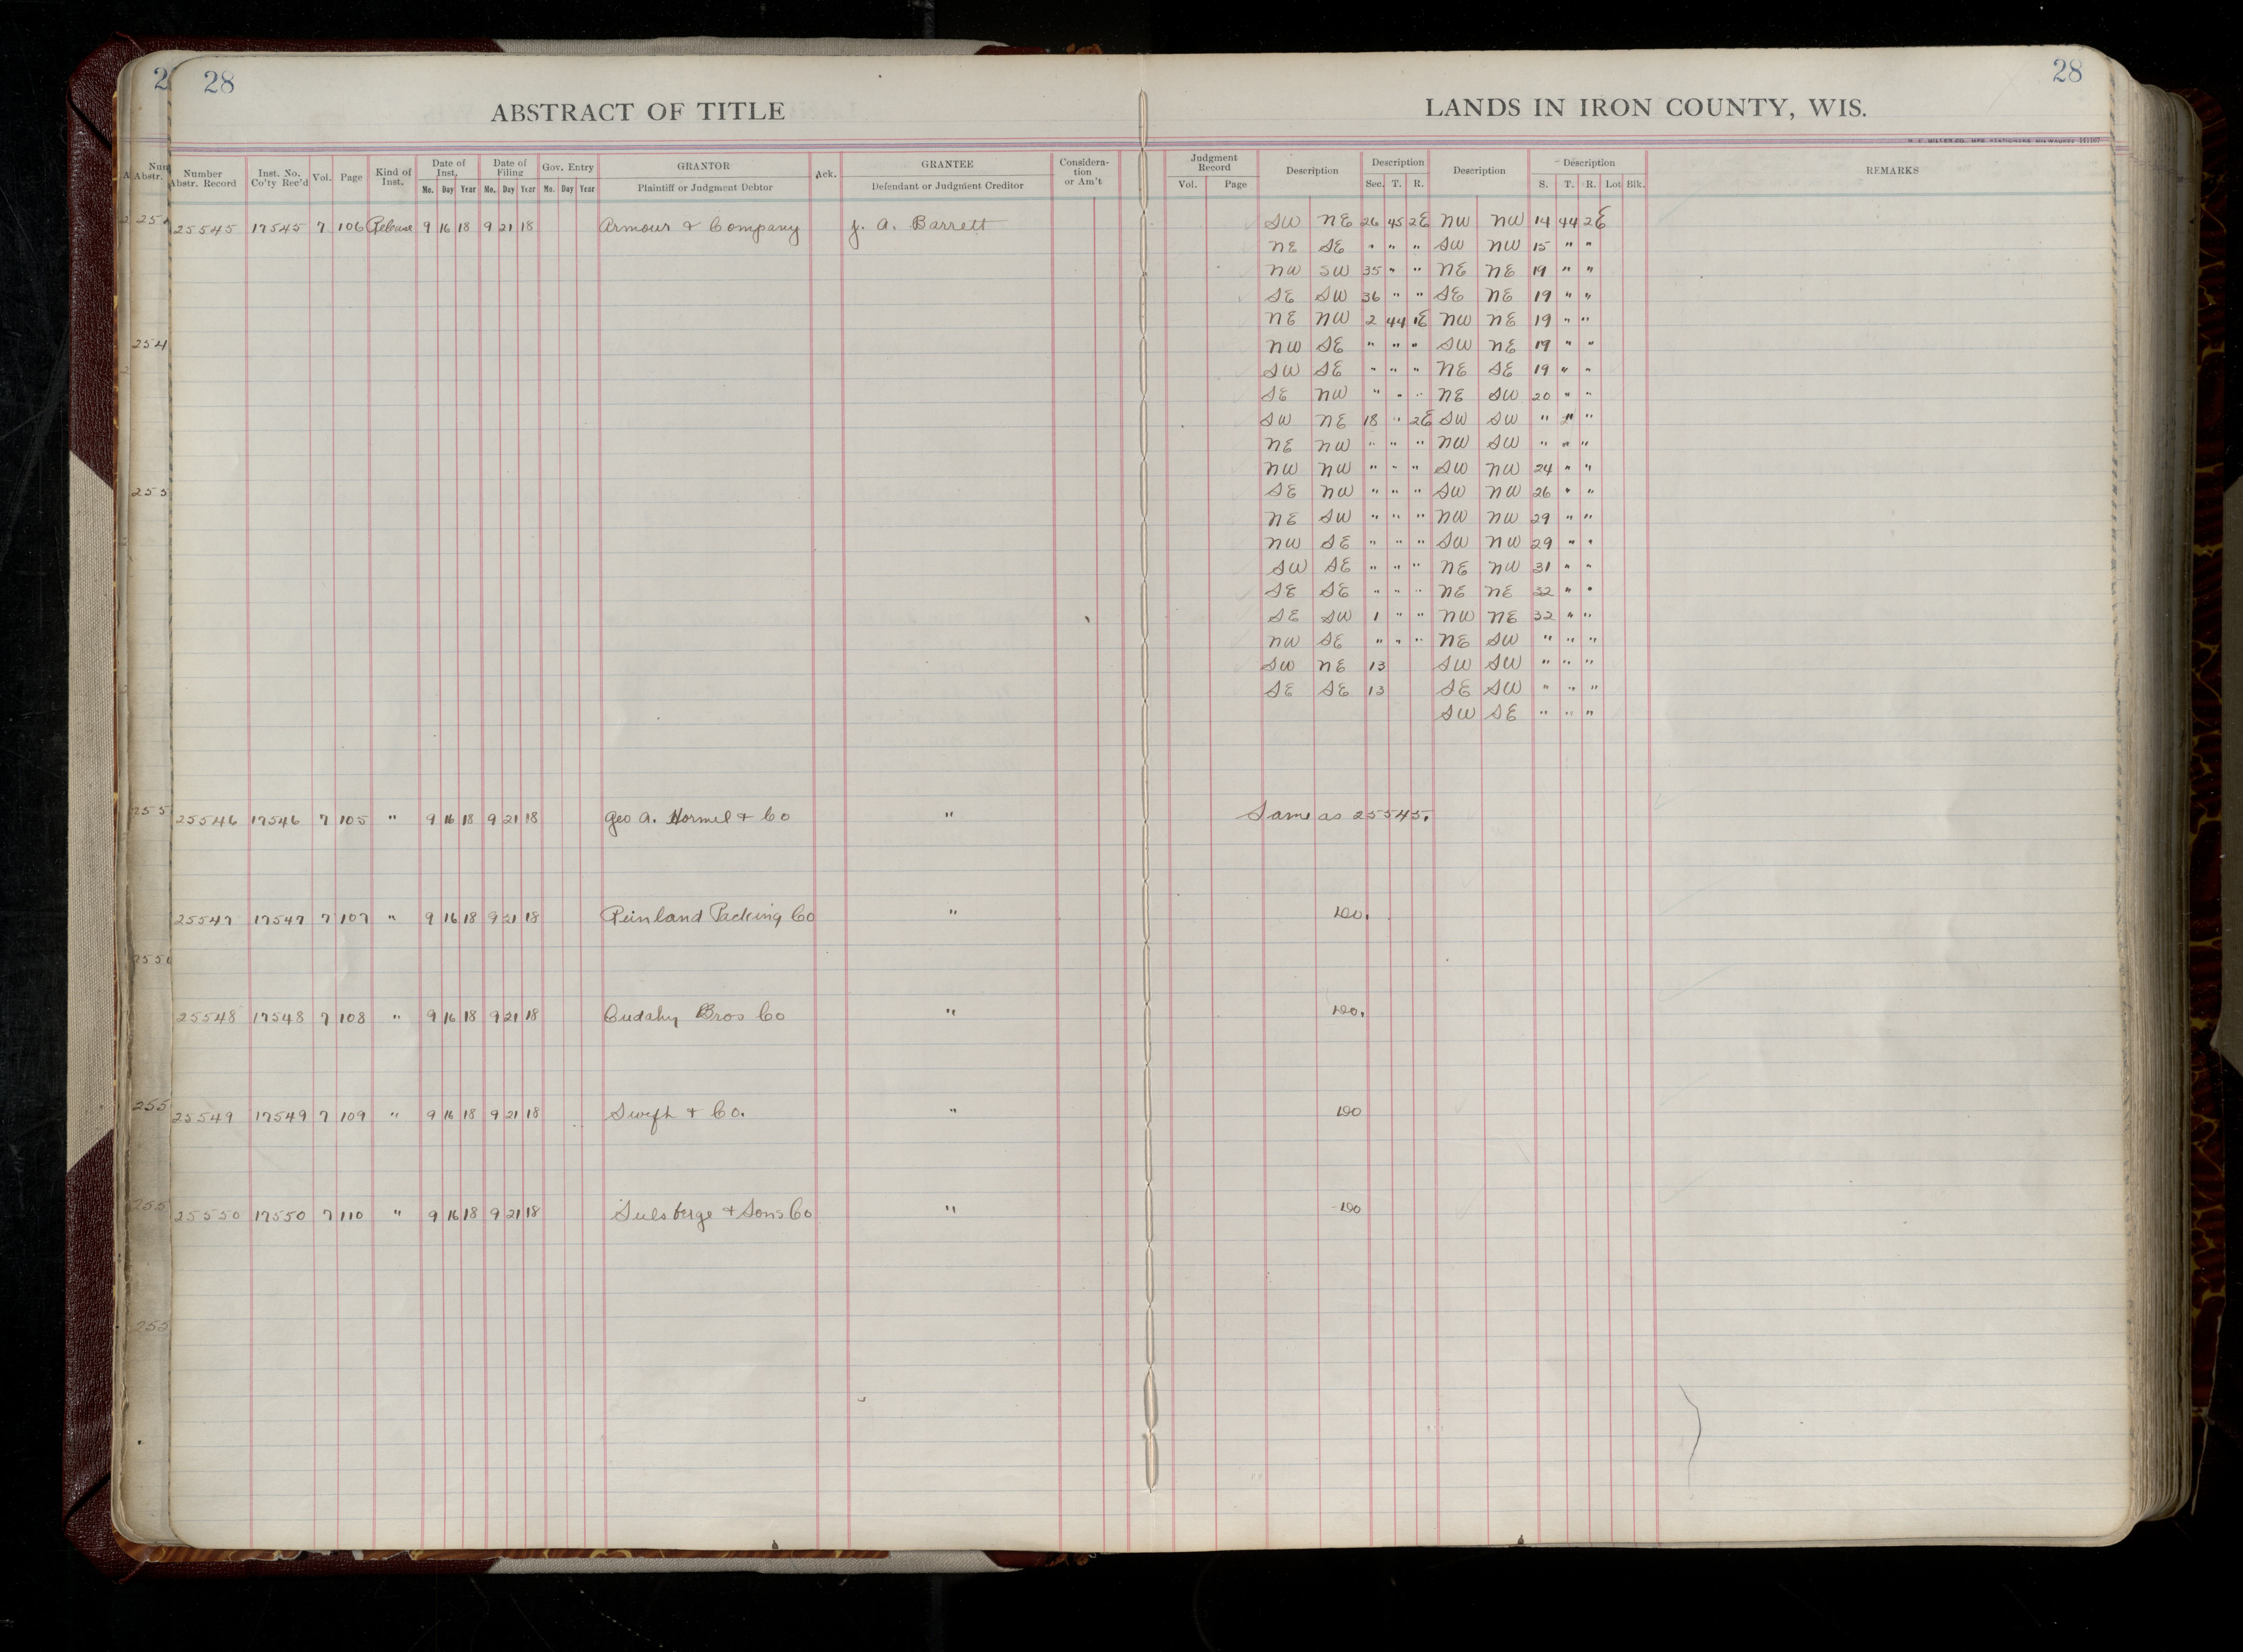 28
28
ABSTRACT OF TITLE
LANDS IN IRON COUNTY, WIS.
Number Abstr. Record Inst. No. Co'ty Rec'd Vol. Page Kind of Inst. Date of Inst. Mo. Day Year Date of Filing Mo. Day Year Gov. Entry Mo. Day Year GRANTOR Plaintiff or Judgment Debtor Ack. GRANTEE Defendant or Judgment Creditor Considera-tion or Am't Judgment Record Vol. Page Description Description Sec. T. R. Description Description S. T. R. Lot Blk. REMARKS
25545 17545 7 106 Release 9 16 18 9 21 18 Armour & Company J. A. Barrett SW NE 26 45 2E NW NW 14 44 2E
NE SE " " " SW NW 15 " "
NW SW 35 " " NE NE 19 " "
SE SW 36 " " SE NE 19 " "
NE NW 2 44 1E NW NE 19 " "
NW SE " " " SW NE 19 " "
SW SE " " " NE SE 19 " "
SE NW " " " NE SW 20 " "
SW NE 18 " 2E SW SW " " "
NE NW " " " NW SW " " "
NW NW " " " SW NW 24 " "
SE NW " " " SW NW 26 " "
NE SW " " " NW NW 29 " "
NW SE " " " SW NW 29 " "
SW SE " " " NE NW 31 " "
SE SE " " " NE NE 32 " "
SE SW 1 " " NW NE 32 " "
NW SE " " " NE SW " " "
SW NE 13 SW SW " " "
SE SE 13 SE SW " " "
SW SE " " "
25546 17546 7 105 " 9 16 18 9 21 18 Geo A. Hormel & Co " Same as 25545.
25547 17547 7 107 " 9 16 18 9 21 18 Reinland Packing Co " do.
25548 17548 7 108 " 9 16 18 9 21 18 Cudahy Bros Co " do.
25549 17549 7 109 " 9 16 18 9 21 18 Swift & Co. " do
25550 17550 7 110 " 9 16 18 9 21 18 Sulsberge & Sons Co " do